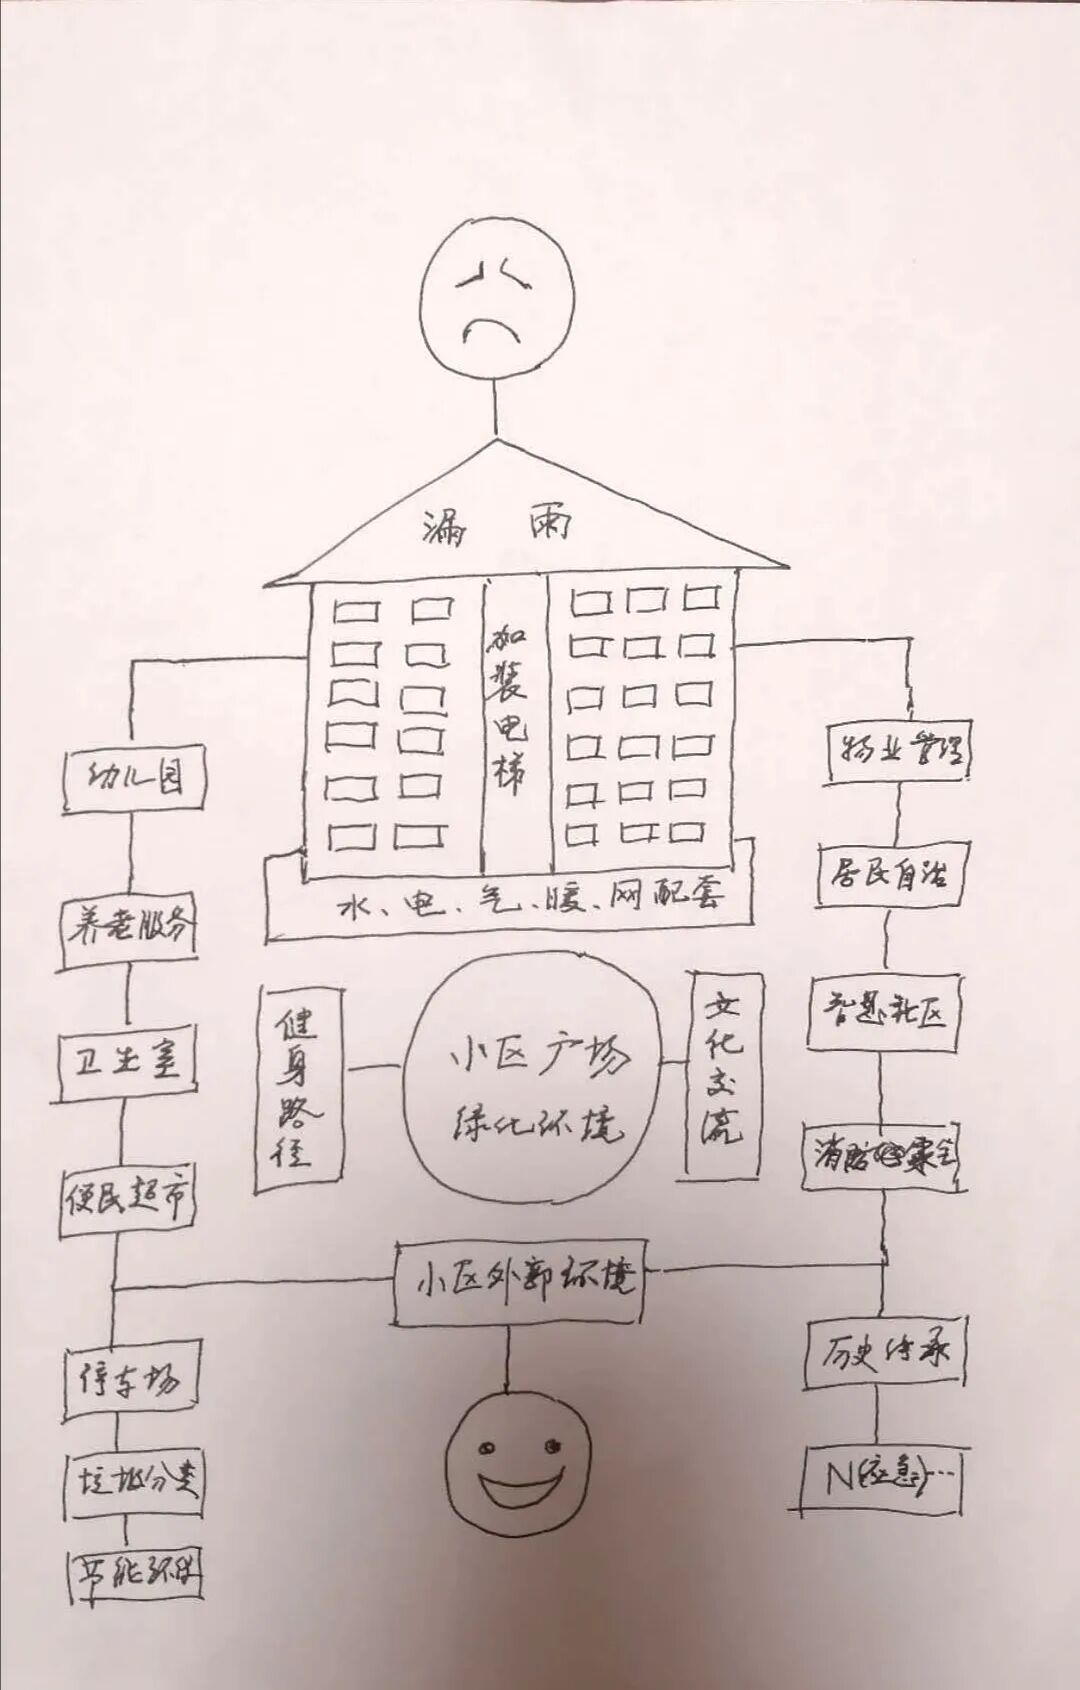 漏 雨
加装电梯
水、电、气、暖、网配套
幼儿园
养老服务
卫生室
便民超市
停车场
垃圾分类
节能环保
健身路径
小区广场
绿化环境
文化交流
小区外部环境
物业管理
居民自治
智慧社区
消防
历史传承
N(应急)…